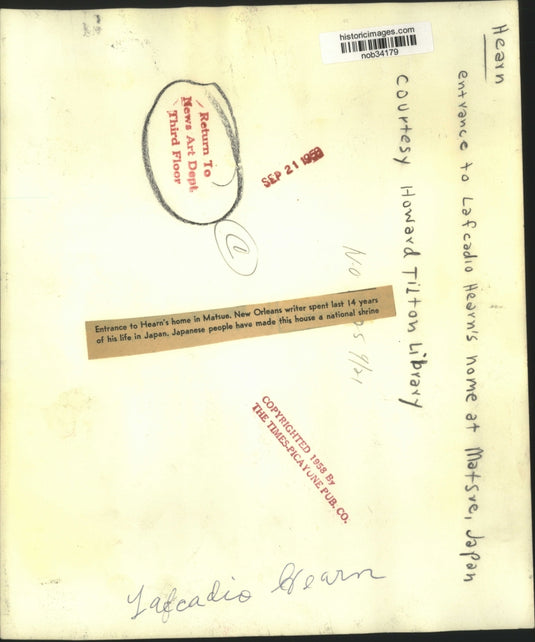 historicimages.com
nob34179
Hearn
entrance to Lafcadio Hearn's home at Matsue, Japan
Courtesy Howard Tilton Library
Return To
News Art Dept.
Third Floor
SEP 21 1958
C
N.O.
9/21
Entrance to Hearn's home in Matsue. New Orleans writer spent last 14 years
of his life in Japan. Japanese people have made this house a national shrine
COPYRIGHTED 1958 By
THE TIMES-PICAYUNE PUB. CO.
Lafcadio Hearn